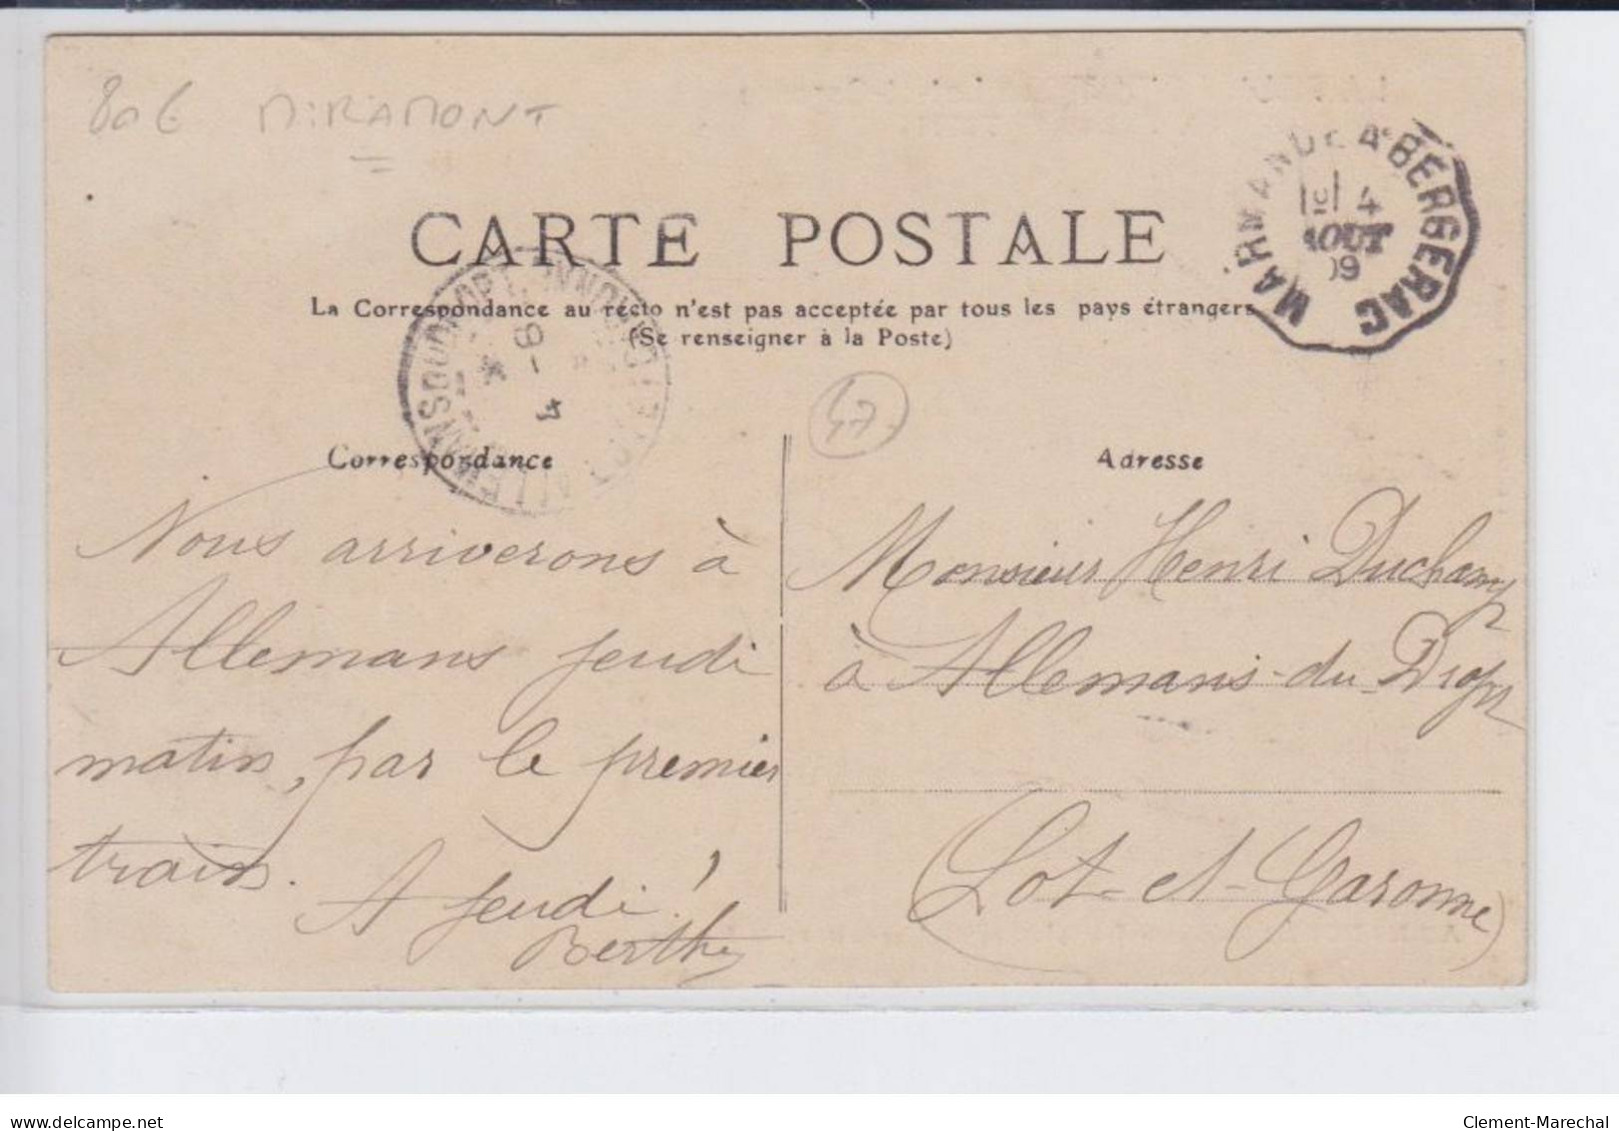 806 MIRAMONT
CARTE POSTALE
La Correspondance au recto n'est pas acceptée par tous les pays étrangers
(Se renseigner à la Poste)
MARMANDE A BERGERAC
4
AOUT
09
47
Correspondance
Adresse
Nous arriverons à
Allemans jeudi
matin, par le premier
train.
A jeudi!
Berthe
Monsieur Henri Duchamp
à Allemans-du-Dropt
(Lot-et-Garonne)
Clement-Marechal